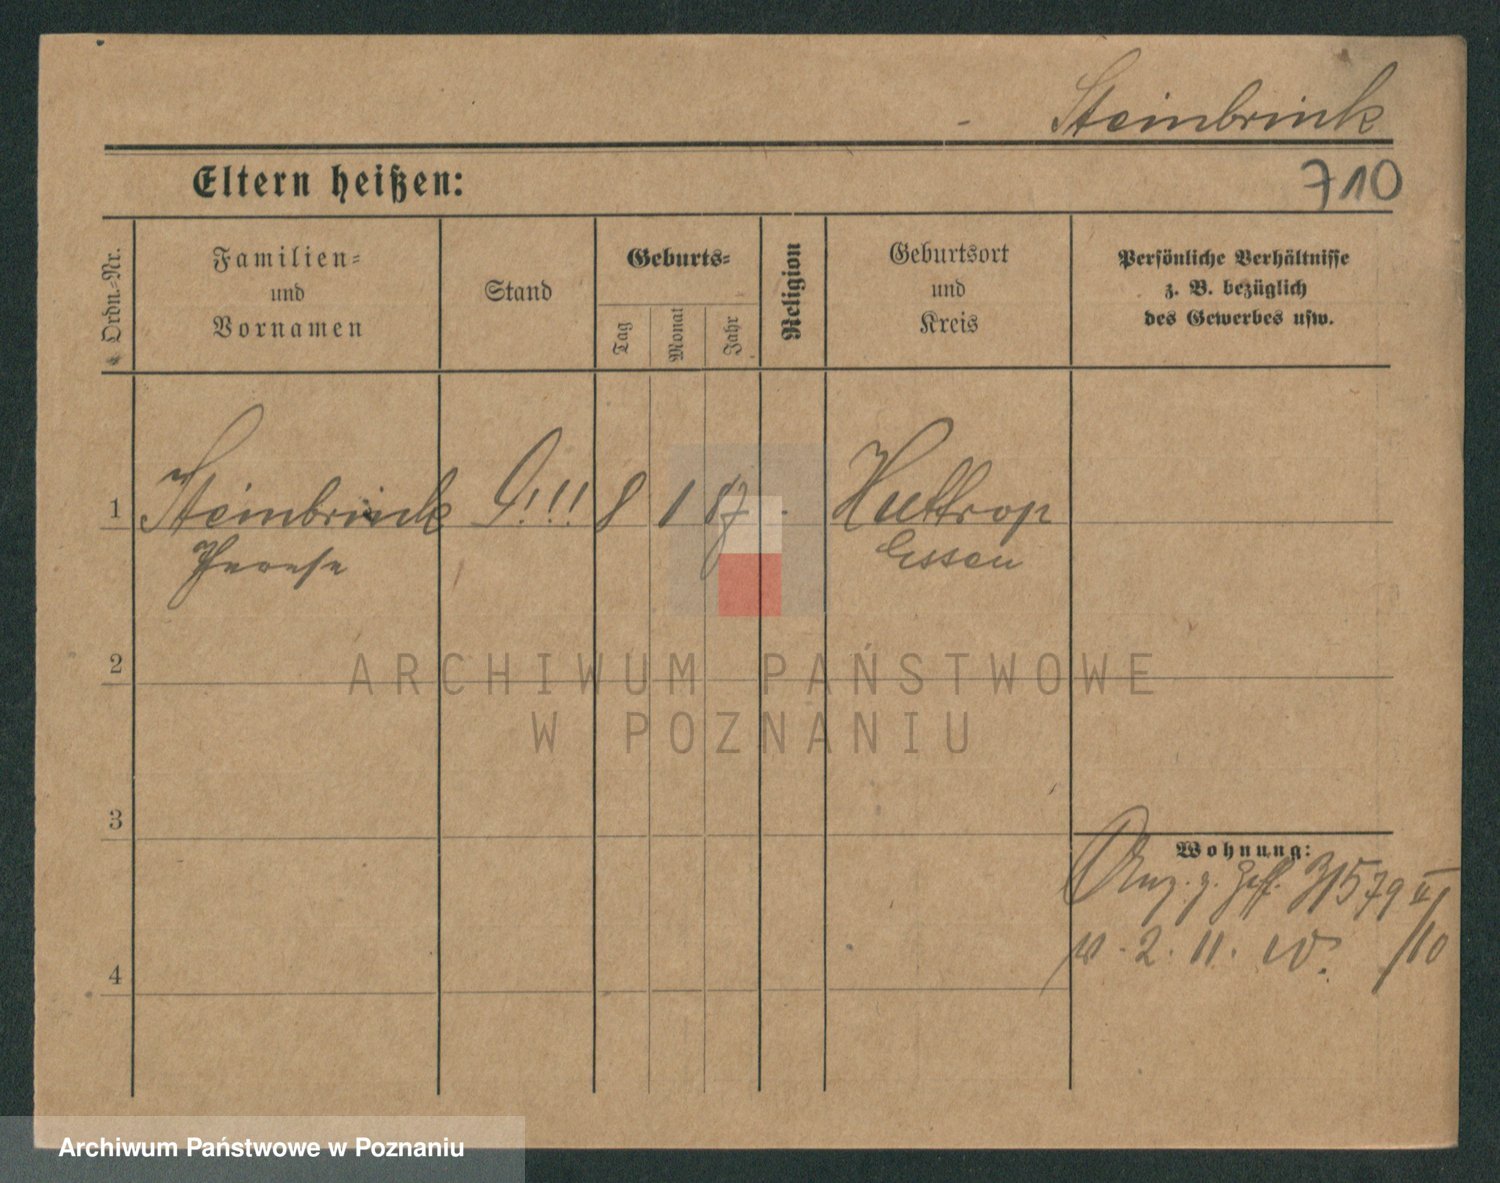 Steinbrink
710
Eltern heißen:
Ordn.-Nr.
Familien-
und
Vornamen
Stand
Geburts-
Tag
Monat
Jahr
Religion
Geburtsort
und
Kreis
Persönliche Verhältnisse
z. B. bezüglich
des Gewerbes usw.
1 Steinbrink !!! 8 1 87 - Huttrop
Therese Essen
2
3
4
Wohnung:
579 II
2. 11. /10
ARCHIWUM PAŃSTWOWE
W POZNANIU
Archiwum Państwowe w Poznaniu